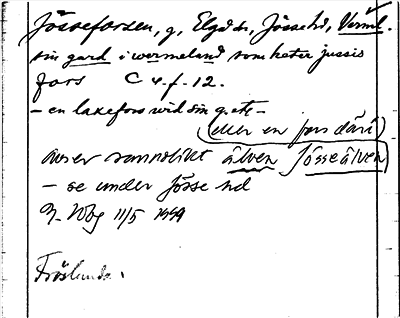 Jösseforsen, g, Elgå sn, Jösse hd, Värml.
sin gard i wermeland som heter jussis
fors C 4. f. 12.
– en laxefors wid sin g. etc –
(eller en fors däri)
avser sannolikt älven Jösseälven
– se under Jösse hd
11/5 1949
Fröslunda.